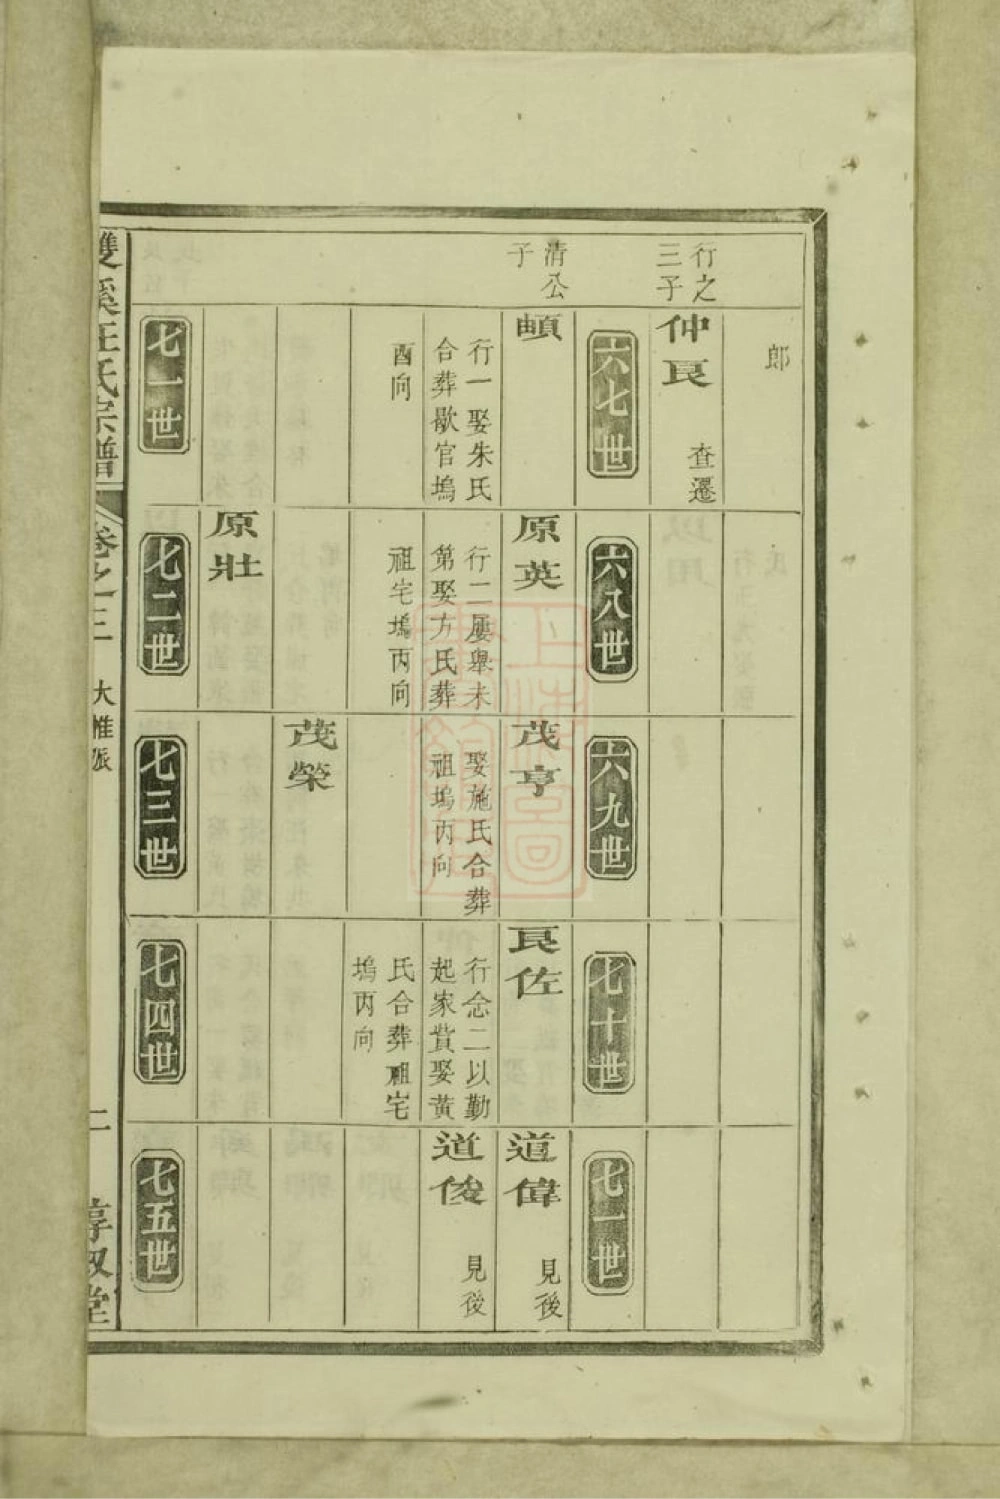 郎
行之
三子
仲良
查遷
六七世
清公
子
頔
行一娶朱氏
合葬歇官塢
酉向
七一世
六八世
原英
行二屢舉未
第娶方氏葬
祖宅塢丙向
原壯
七二世
六九世
茂亨
娶施氏合葬
祖塢丙向
茂榮
七三世
七十世
良佐
行念二以勤
起家貲娶黃
氏合葬祖宅
塢丙向
七四世
七一世
道偉
見後
道俊
見後
七五世
雙溪汪氏宗譜
卷之三
大惟派
二
惇叙堂
上海圖書館藏